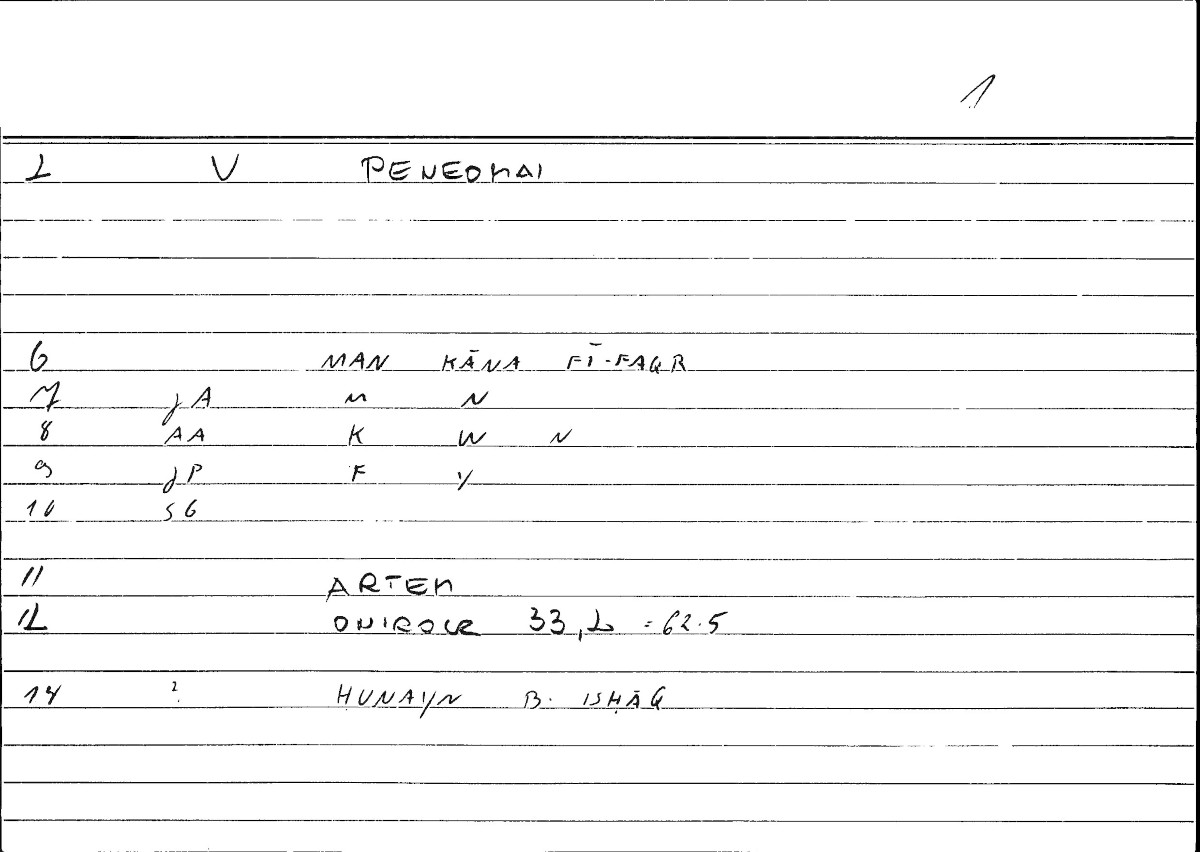 1
2 V PENEOMAI
6 MAN KĀNA FĪ-FAQR
7 JA M N
8 AA K W N
9 JP F Y
10 SG
11 ARTEM
12 ONIROCR 33,2 = 62.5
14 ? ḤUNAYN B. ISḤĀQ